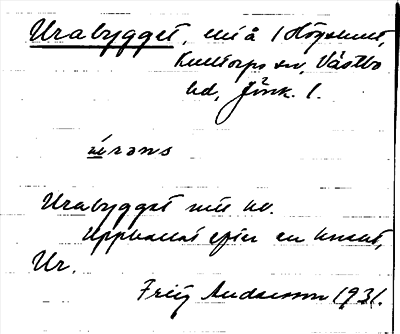 Urabygget, litå 1 Högshult,
Kulltorps sn, Västbo
hd, Jönk. l.
ùrəns
Urabygget nu
uppkallat efter en knekt,
Ur.
Frey Andersson 1931.